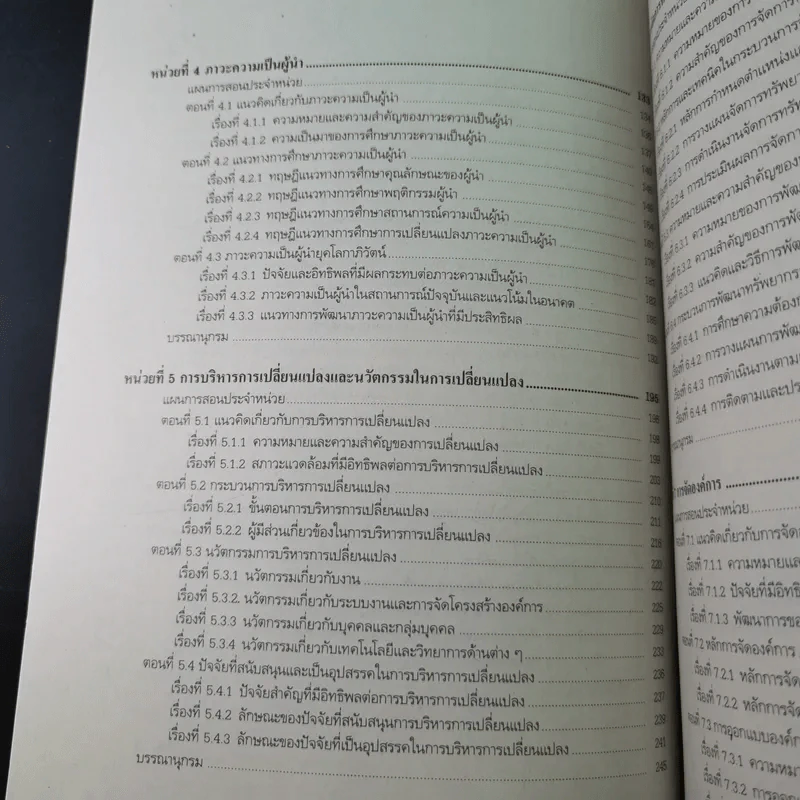 หน่วยที่ 4 ภาวะความเป็นผู้นำ
แผนการสอนประจำหน่วย
ตอนที่ 4.1 แนวคิดเกี่ยวกับภาวะความเป็นผู้นำ
เรื่องที่ 4.1.1 ความหมายและความสำคัญของภาวะความเป็นผู้นำ
เรื่องที่ 4.1.2 ความเป็นมาของการศึกษาภาวะความเป็นผู้นำ
ตอนที่ 4.2 แนวทางการศึกษาภาวะความเป็นผู้นำ
เรื่องที่ 4.2.1 ทฤษฎีแนวทางการศึกษาคุณลักษณะของผู้นำ
เรื่องที่ 4.2.2 ทฤษฎีแนวทางการศึกษาพฤติกรรมผู้นำ
เรื่องที่ 4.2.3 ทฤษฎีแนวทางการศึกษาสถานการณ์ความเป็นผู้นำ
เรื่องที่ 4.2.4 ทฤษฎีแนวทางการศึกษาการเปลี่ยนแปลงภาวะความเป็นผู้นำ
ตอนที่ 4.3 ภาวะความเป็นผู้นำยุคโลกาภิวัตน์
เรื่องที่ 4.3.1 ปัจจัยและอิทธิพลที่มีผลกระทบต่อภาวะความเป็นผู้นำ
เรื่องที่ 4.3.2 ภาวะความเป็นผู้นำในสถานการณ์ปัจจุบันและแนวโน้มในอนาคต
เรื่องที่ 4.3.3 แนวทางการพัฒนาภาวะความเป็นผู้นำที่มีประสิทธิผล
บรรณานุกรม 192
หน่วยที่ 5 การบริหารการเปลี่ยนแปลงและนวัตกรรมในการเปลี่ยนแปลง 195
แผนการสอนประจำหน่วย 196
ตอนที่ 5.1 แนวคิดเกี่ยวกับการบริหารการเปลี่ยนแปลง 198
เรื่องที่ 5.1.1 ความหมายและความสำคัญของการเปลี่ยนแปลง 199
เรื่องที่ 5.1.2 สภาวะแวดล้อมที่มีอิทธิพลต่อการบริหารการเปลี่ยนแปลง 203
ตอนที่ 5.2 กระบวนการบริหารการเปลี่ยนแปลง 210
เรื่องที่ 5.2.1 ขั้นตอนการบริหารการเปลี่ยนแปลง 211
เรื่องที่ 5.2.2 ผู้มีส่วนเกี่ยวข้องในการบริหารการเปลี่ยนแปลง
ตอนที่ 5.3 นวัตกรรมการบริหารการเปลี่ยนแปลง
เรื่องที่ 5.3.1 นวัตกรรมเกี่ยวกับงาน 222
เรื่องที่ 5.3.2 นวัตกรรมเกี่ยวกับระบบงานและการจัดโครงสร้างองค์การ 225
เรื่องที่ 5.3.3 นวัตกรรมเกี่ยวกับบุคคลและกลุ่มบุคคล 229
เรื่องที่ 5.3.4 นวัตกรรมเกี่ยวกับเทคโนโลยีและวิทยาการด้านต่าง ๆ 233
ตอนที่ 5.4 ปัจจัยที่สนับสนุนและเป็นอุปสรรคในการบริหารการเปลี่ยนแปลง 236
เรื่องที่ 5.4.1 ปัจจัยสำคัญที่มีอิทธิพลต่อการบริหารการเปลี่ยนแปลง 237
เรื่องที่ 5.4.2 ลักษณะของปัจจัยที่สนับสนุนการบริหารการเปลี่ยนแปลง 239
เรื่องที่ 5.4.3 ลักษณะของปัจจัยที่เป็นอุปสรรคในการบริหารการเปลี่ยนแปลง 241
บรรณานุกรม 245
6.1.1 ความหมายของการ
6.1.2 ความสำคัญของการจัดการ
6.2.1 หลักการกำหนดตำแหน่ง
6.2.2 การวางแผนจัดการทรัพยา
6.2.3 การดำเนินงานจัดการทรัพ
6.2.4 การประเมินผลการจัดกา
6.3.1 ความหมายของการพัฒ
6.3.2 ความสำคัญของการพัฒ
6.3.3 แนวคิดและวิธีการพัฒ
6.4 กระบวนการพัฒนาทรัพยากร
เรื่องที่ 6.4.1 การศึกษาความต้อง
เรื่องที่ 6.4.2 การวางแผนการพัฒ
เรื่องที่ 6.4.3 การดำเนินงานตาม
เรื่องที่ 6.4.4 การติดตามและปร
การจัดองค์การ
แผนการสอนประจำหน่วย
ตอนที่ 7.1 แนวคิดเกี่ยวกับการจัดอ
เรื่องที่ 7.1.1 ความหมายแล
เรื่องที่ 7.1.2 ปัจจัยที่มีอิทธิ
เรื่องที่ 7.1.3 พัฒนาการขอ
ตอนที่ 7.2 หลักการจัดองค์การ
เรื่องที่ 7.2.1 หลักการจัด
เรื่องที่ 7.2.2 หลักการจัด
ตอนที่ 7.3 การออกแบบองค์ก
เรื่องที่ 7.3.1 ความหมา
เรื่องที่ 7.3.2 การออก